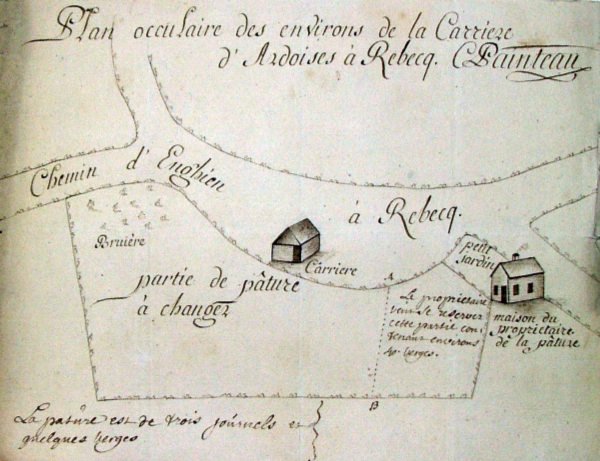 Plan occulaire des environs de la Carriere
d'Ardoises à Rebecq. CPainteau
Chemin d'Enghien
à Rebecq.
Bruière
Carriere
petit
Jardin
partie de pâture
à changer
A
Le proprietaire
veut se reserver
cette partie con
tenant environs
verges.
maison du
proprietaire
de la pâture
B
La pature est de trois journels et
quelques verges